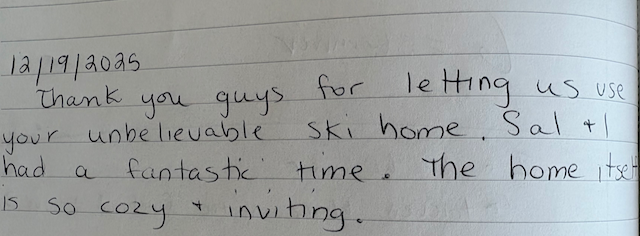 12/19/2025
Thank you guys for letting us use
your unbelievable ski home. Sal + I
had a fantastic time. The home itself
is so cozy + inviting.